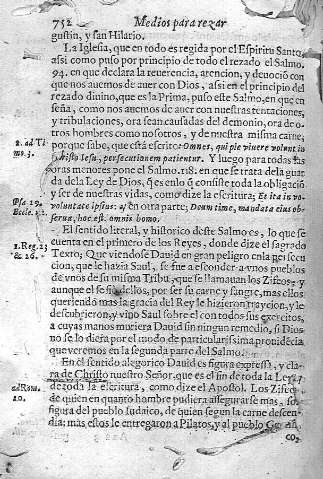 752 Medios para rezar
gustin, y san Hilario.
La Iglesia, que en todo es regida por el Espiritu Santo,
assi como puso por principio de todo el rezado el Salmo.
94. en que declara la reuerencia, atencion, y deuoció con
que nos auemos de auer con Dios, assi en el principio del
rezado diuino, que es la Prima, puso este Salmo, en que en
seña, como nos auemos de auer con nuestras tentaciones,
y tribulaciones, ora sean causadas del demonio, ora de o-
tros hombres como nosotros, y de nuestra misma carne,
1. ad Ti
porque sabe, que está escrito: Omnes, qui pie viuere volunt in
mo. 3.
Christo Iesu, persecutionem patientur. Y luego para todas las
horas menores pone el Salmo. 118. en que se trata de la guar
da de la Ley de Dios, q̃ es en lo q̃ consiste toda la obligació
y ser de nuestras vidas, como dize la escritura; Et ita in vo-
Psa 29.
luntate ipsius: y en otra parte: Deum time, mandata eius ob-
Eccle. 12.
serua, hoc est omnis homo.
El sentido literal, y historico deste Salmo es, lo que se
1. Reg. 23
cuenta en el primero de los Reyes, donde dize el sagrado
& 26.
Texto; Que viendose Dauid en gran peligro en la persecu
cion, que le hazia Saul, se fue a esconder a vnos pueblos
de vnos de su misma Tribu, que se llamauan los Zifeos: y
aunque el se fió dellos, por ser su carne y sangre, mas ellos
queriendo mas la gracia del Rey le hizieron traycion, y le
descubrieron, y vino Saul sobre el con todos sus exercitos,
a cuyas manos muriera Dauid sin ningun remedio, si Dios
no se lo diera por el modo de particularissima prouidēcia
que veremos en la segunda parte del Salmo.
En el sentido alegorico Dauid es figura expressa, y cla
ra de Christo nuestro Señor, que es el fin de toda la Ley,
ad Rom.
de toda la escritura, como dize el Apostol. Los Zifeos,
10.
de quien en quanto hombre pudiera assegurarse mas, so
figura del pueblo Iudaico, de quien segun la carne descen-
dia; mas estos le entregaron a Pilatos, y al pueblo
co,